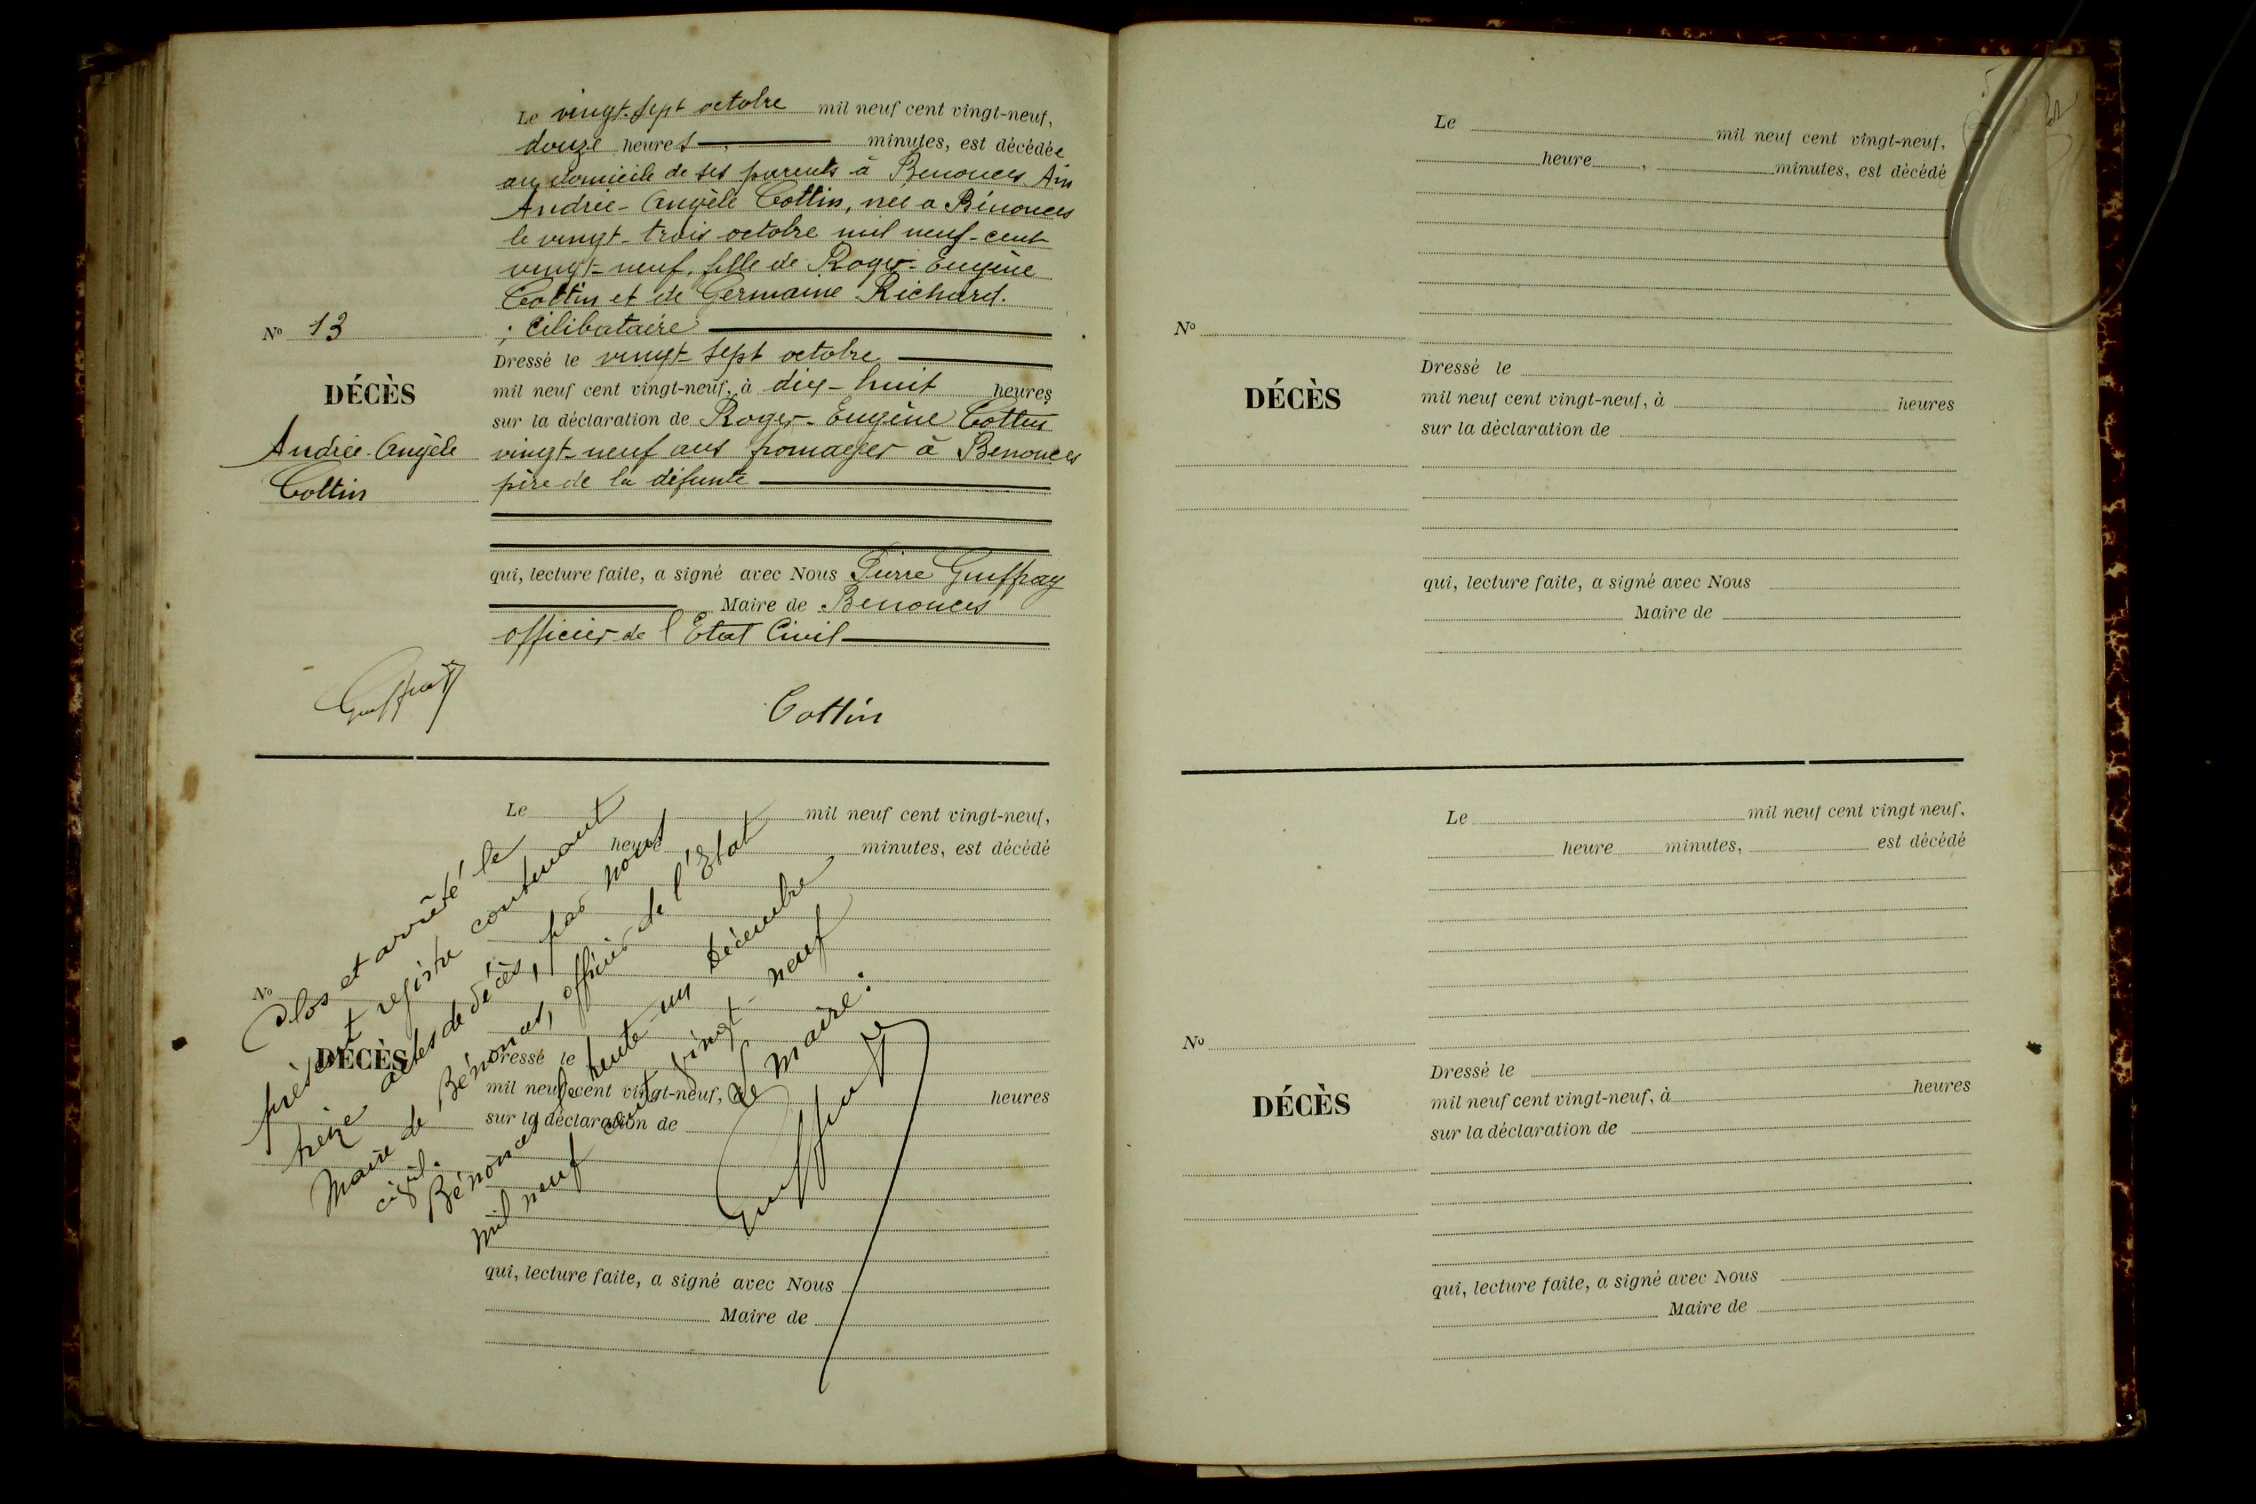 Le vingt-sept octobre mil neuf cent vingt-neuf,
douze heures minutes, est décédée
au domicile de ses parents à Benonces Ain
Andrée-Angèle Cottin, née à Bénonces
le vingt-trois octobre mil neuf-cent
vingt-neuf, fille de Roger-Eugène
Cottin et de Germaine Richard.
; célibataire
Dressé le vingt-sept octobre
mil neuf cent vingt-neuf, à dix-huit heures
sur la déclaration de Roger-Eugène Cottin
vingt-neuf ans fromager à Benonces
père de la défunte
qui, lecture faite, a signé avec Nous Pierre Guffray
Maire de Benonces
officier de l'Etat Civil
No 13
DÉCÈS
Andrée-Angèle
Cottin
Cottin
Le mil neuf cent vingt-neuf,
heure minutes, est décédé
No
DÉCÈS
Dressé le
mil neuf cent vingt-neuf, à heures
sur la déclaration de
qui, lecture faite, a signé avec Nous
Maire de
Clos et arrêté le
présent registre contenant
treize actes de décès, par nous
Maire de Bénonces, officier de l'Etat
civil.
Bénonces le trente-un Décembre
mil neuf cent vingt-neuf
Le Maire:
Le mil neuf cent vingt-neuf,
heure , minutes, est décédé
No
DÉCÈS
Dressé le
mil neuf cent vingt-neuf, à heures
sur la déclaration de
qui, lecture faite, a signé avec Nous
Maire de
Le mil neuf cent vingt neuf,
heure minutes, est décédé
No
DÉCÈS
Dressé le
mil neuf cent vingt-neuf, à heures
sur la déclaration de
qui, lecture faite, a signé avec Nous
Maire de